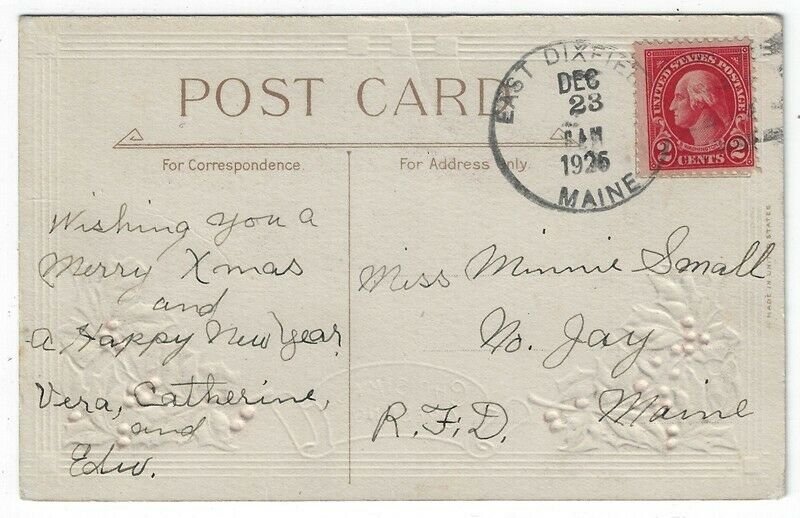 POST CARD
For Correspondence.
For Address Only.
EAST DIXFIE
DEC
23
AM
1925
MAINE
UNITED STATES POSTAGE
WASHINGTON
2 CENTS 2
MADE IN UNITED STATES
Wishing you a
Merry Xmas
and
a Happy New Year,
Vera, Catherine,
and
Edw.
Miss Minnie Small
No. Jay
Maine
R.F.D.